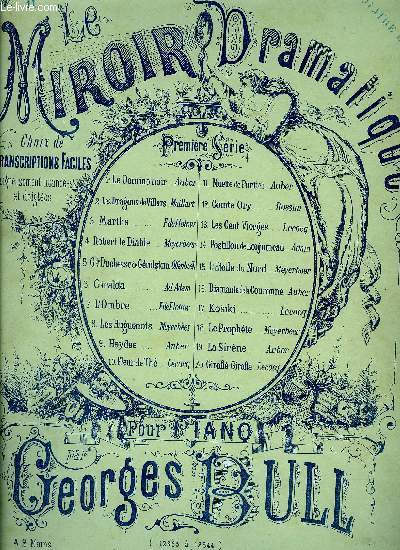 Le-livre.com
Le
MIROIR Dramatique
Choix de
TRANSCRIPTIONS FACILES
et doigtées
Première Série
1 Le Domino noir Auber
2 Les Dragons de Villars Maillart
3 Martha F. de Flotow
4 Robert le Diable Meyerbeer
5 Gde Duchesse de Gérolstein Offenbach
6 Giralda Ad. Adam
7 L'Ombre F. de Flotow
8 Les Huguenots Meyerbeer
9 Haydée Auber
10 Fleur de Thé Lecocq
11 Muette de Portici Auber
12 Comte Ory Rossini
13 Les Cent Vierges Lecocq
14 Postillon de Lonjumeau Adam
15 L'Etoile du Nord Meyerbeer
16 Diamants de la Couronne Auber
17 Kosiki Lecocq
18 Le Prophète Meyerbeer
19 La Sirène Auber
20 Giroflé Girofla Lecocq
Pour PIANO
Georges BULL